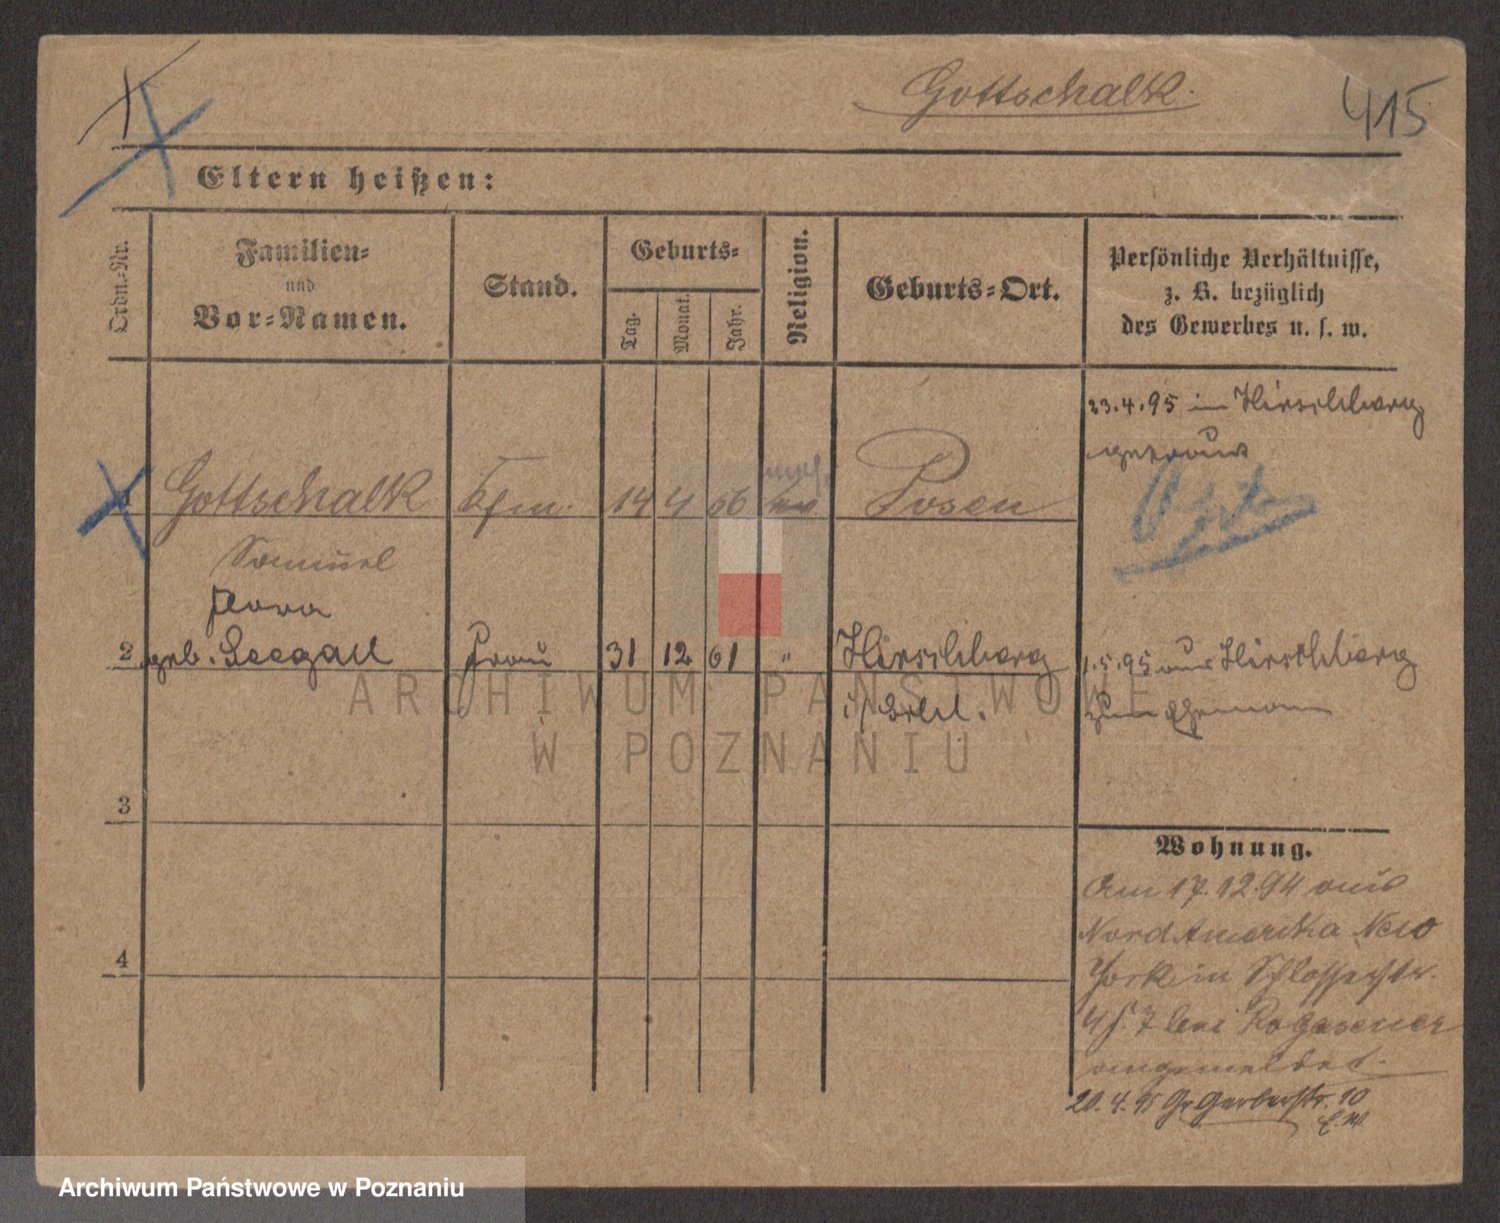 Gottschalk.
415
Eltern heißen:
Ordn.-Nr.
Familien-
und
Vor-Namen.
Stand.
Geburts-
Tag.
Monat.
Jahr.
Religion.
Geburts-Ort.
Persönliche Verhältnisse,
z. B. bezüglich
des Gewerbes u. s. w.
23.4.95 in Hirschberg
getraut
1 Gottschalk Kfm. 14 4 56 mos. Posen
Samuel
Flora
2 geb. Seegall Frau 31 12 61 " Hirschberg
i/Schl.
1.5.95 aus Hirschberg
zum Ehemann
ARCHIWUM PAŃSTWOWE
W POZNANIU
3
Wohnung.
Am 17.12.94 aus
Nord Amerika New
York in Schlosserstr.
4 f. 7 bei Rogasener
angemeldet.
4
20.4.95 Gr Gerberstr. 10
Archiwum Państwowe w Poznaniu